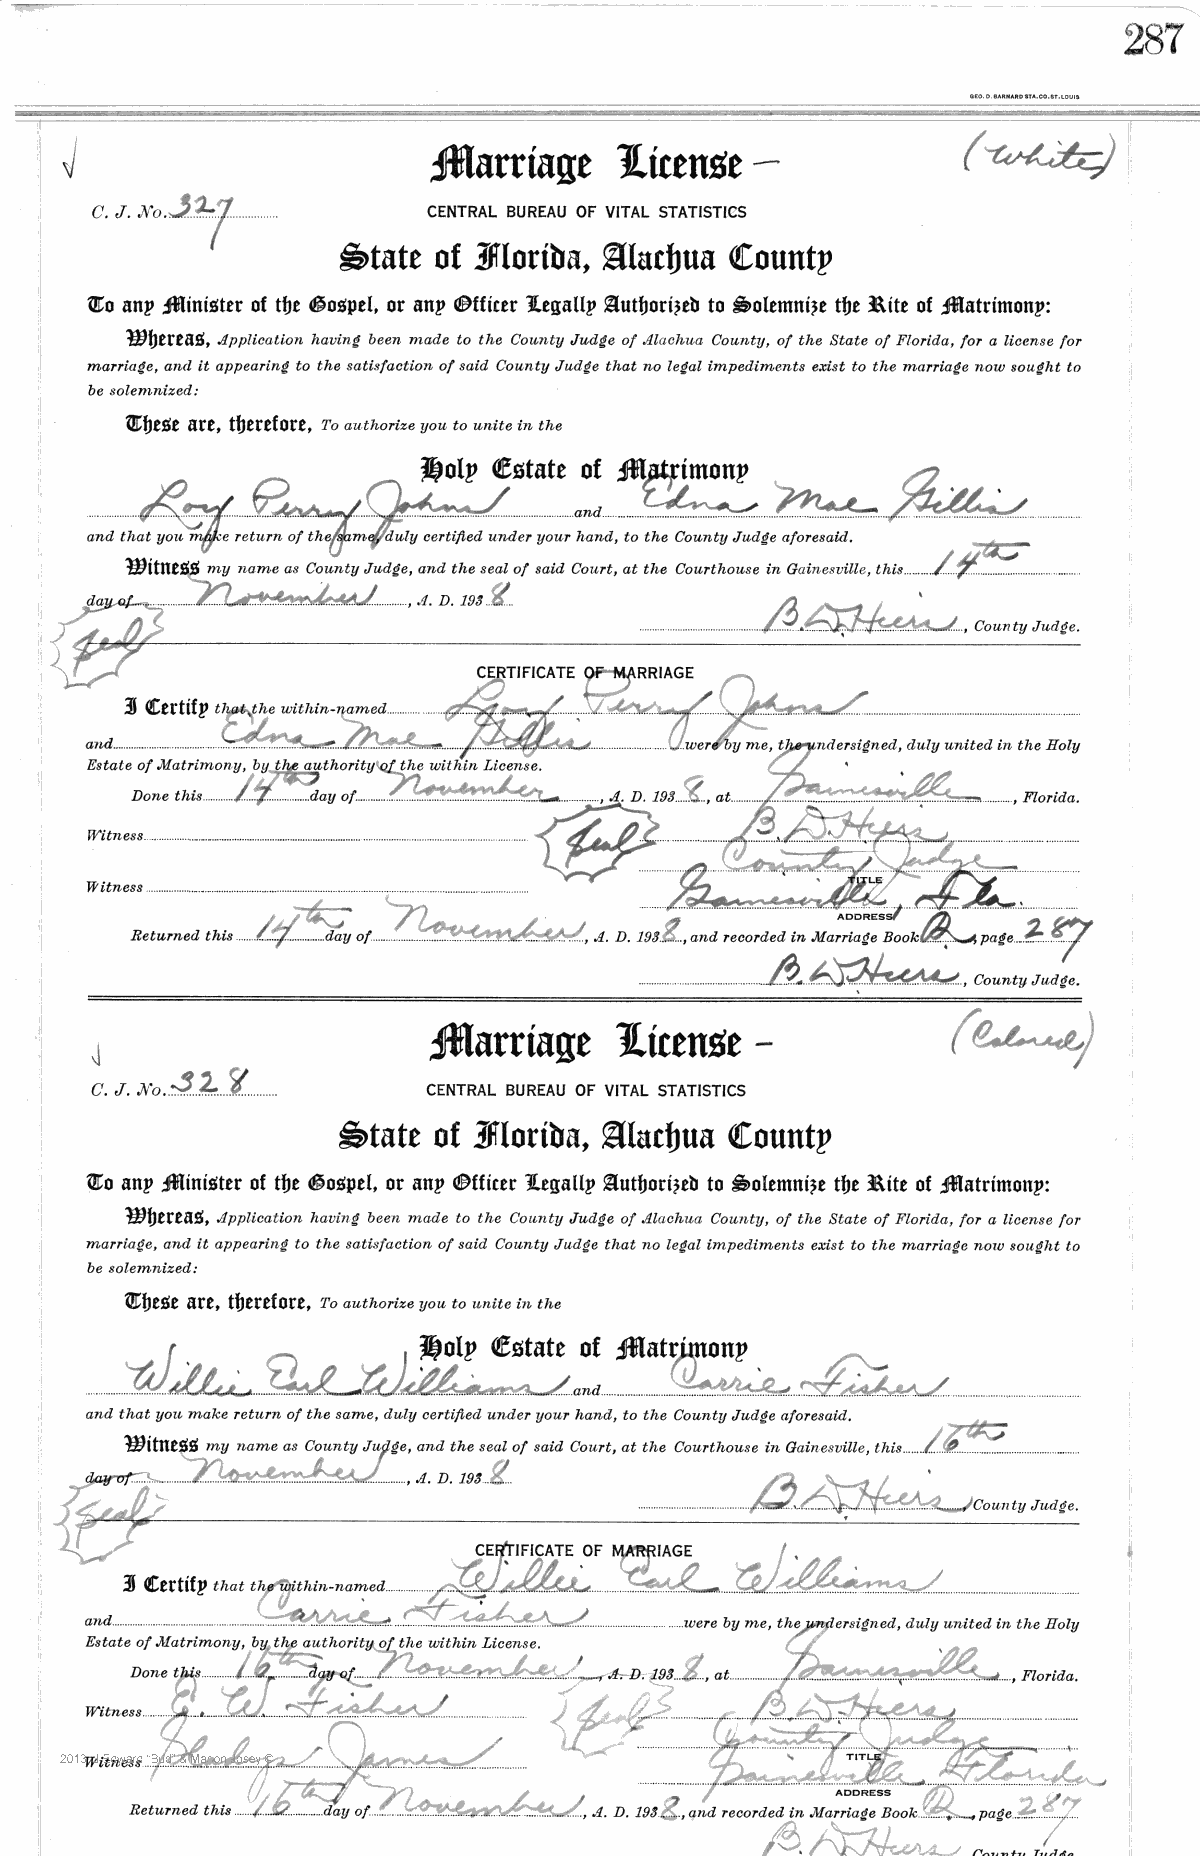 287
GEO. D. BARNARD STA. CO. ST. LOUIS
Marriage License — (White)
C. J. No. 327 CENTRAL BUREAU OF VITAL STATISTICS
State of Florida, Alachua County
To any Minister of the Gospel, or any Officer Legally Authorized to Solemnize the Rite of Matrimony:
Whereas, Application having been made to the County Judge of Alachua County, of the State of Florida, for a license for
marriage, and it appearing to the satisfaction of said County Judge that no legal impediments exist to the marriage now sought to
be solemnized:
These are, therefore, To authorize you to unite in the
Holy Estate of Matrimony
Loy Perry Johns and Edna Mae Gillis
and that you make return of the same, duly certified under your hand, to the County Judge aforesaid.
Witness my name as County Judge, and the seal of said Court, at the Courthouse in Gainesville, this 14th
day of November, A. D. 1938
Seal
B. D. Hiers, County Judge.
CERTIFICATE OF MARRIAGE
I Certify that the within-named Loy Perry Johns
and Edna Mae Gillis were by me, the undersigned, duly united in the Holy
Estate of Matrimony, by the authority of the within License.
Done this 14th day of November, A. D. 1938, at Gainesville, Florida.
Witness Seal B. D. Hiers
County Judge
TITLE
Witness Gainesville, Fla.
ADDRESS
Returned this 14th day of November, A. D. 1938, and recorded in Marriage Book R, page 287
B. D. Hiers, County Judge.
Marriage License – (Colored)
C. J. No. 328 CENTRAL BUREAU OF VITAL STATISTICS
State of Florida, Alachua County
To any Minister of the Gospel, or any Officer Legally Authorized to Solemnize the Rite of Matrimony:
Whereas, Application having been made to the County Judge of Alachua County, of the State of Florida, for a license for
marriage, and it appearing to the satisfaction of said County Judge that no legal impediments exist to the marriage now sought to
be solemnized:
These are, therefore, To authorize you to unite in the
Holy Estate of Matrimony
Willie Earl Williams and Carrie Fisher
and that you make return of the same, duly certified under your hand, to the County Judge aforesaid.
Witness my name as County Judge, and the seal of said Court, at the Courthouse in Gainesville, this 16th
day of November, A. D. 1938
Seal
B. D. Hiers, County Judge.
CERTIFICATE OF MARRIAGE
I Certify that the within-named Willie Earl Williams
and Carrie Fisher were by me, the undersigned, duly united in the Holy
Estate of Matrimony, by the authority of the within License.
Done this 16th day of November, A. D. 1938, at Gainesville, Florida.
Witness E. W. Fisher Seal B. D. Hiers
County Judge
TITLE
Witness James Gainesville Florida
ADDRESS
Returned this 16th day of November, A. D. 1938, and recorded in Marriage Book R, page 287
B. D. Hiers County Judge.